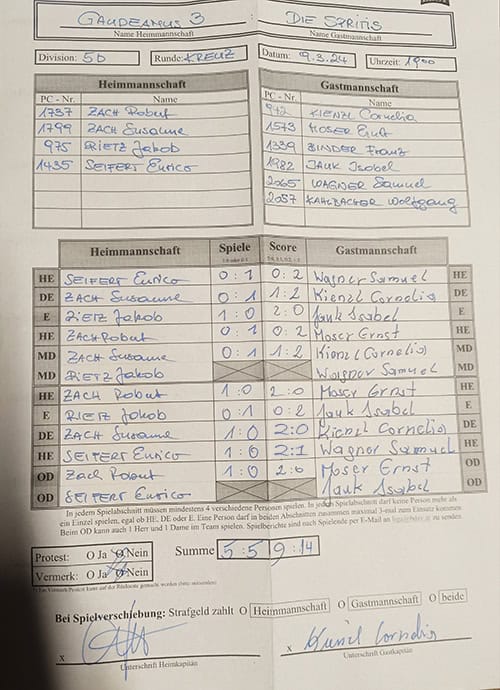 GAUDEAMUS 3 DIE SPRITIS
Name Heimmannschaft Name Gastmannschaft
Division: 5b Runde: KREUZ Datum: 9.3.24 Uhrzeit: 19⁰⁰
Heimmannschaft Gastmannschaft
PC - Nr. Name PC - Nr. Name
1737 ZACH Robert 942 KIENZL Cornelia
1799 ZACH Susanne 1573 MOSER Ernst
975 RIETZ Jakob 1339 BINDER Franz
1435 SEIFERT Enrico 1982 JAUK Isabel
2065 WAGNER Samuel
2057 KAHLBACHER Wolfgang
Heimmannschaft Spiele Score Gastmannschaft
HE SEIFERT Enrico 0:1 0:2 Wagner Samuel HE
DE ZACH Susanne 0:1 1:2 Kienzl Cornelia DE
E RIETZ Jakob 1:0 2:0 Jauk Isabel E
HE ZACH Robert 0:1 0:2 Moser Ernst HE
MD ZACH Susanne 0:1 1:2 Kienzl Cornelia MD
MD RIETZ Jakob Wagner Samuel MD
HE ZACH Robert 1:0 2:0 Moser Ernst HE
E RIETZ Jakob 0:1 0:2 Jauk Isabel E
DE ZACH Susanne 1:0 2:0 Kienzl Cornelia DE
HE SEIFERT Enrico 1:0 2:1 Wagner Samuel HE
OD Zach Robert 1:0 2:0 Moser Ernst OD
OD SEIFERT Enrico Jauk Isabel OD
In jedem Spielabschnitt müssen mindestens 4 verschiedene Personen spielen. In jedem Spielabschnitt darf keine Person mehr als
ein Einzel spielen, egal ob HE, DE oder E. Eine Person darf in beiden Abschnitten zusammen maximal 3-mal zum Einsatz kommen.
Beim OD kann auch 1 Herr und 1 Dame im Team spielen. Spielberichte sind nach Spielende per E-Mail an zu senden.
Protest: O Ja O Nein Summe 5:5 9:14
Vermerk: O Ja O Nein
Bei Spielverschiebung: Strafgeld zahlt O Heimmannschaft O Gastmannschaft O beide
x x Kienzl Cornelia
Unterschrift Heimkapitän Unterschrift Gastkapitän